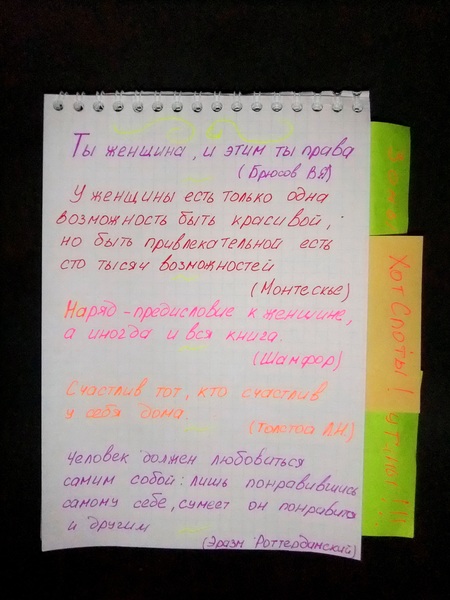 Ты женщина, и этим ты права
(Брюсов В.Я)
У женщины есть только одна
возможность быть красивой,
но быть привлекательной есть
сто тысяч возможностей
(Монтескье)
Наряд - предисловие к женщине,
а иногда и вся книга.
(Шамфор)
Счастлив тот, кто счастлив
у себя дома.
(Толстой Л.Н)
Человек должен любоваться
самим собой: лишь понравившись
самому себе, сумеет он понравится
и другим
(Эразм Роттердамский)
Хот Споты!